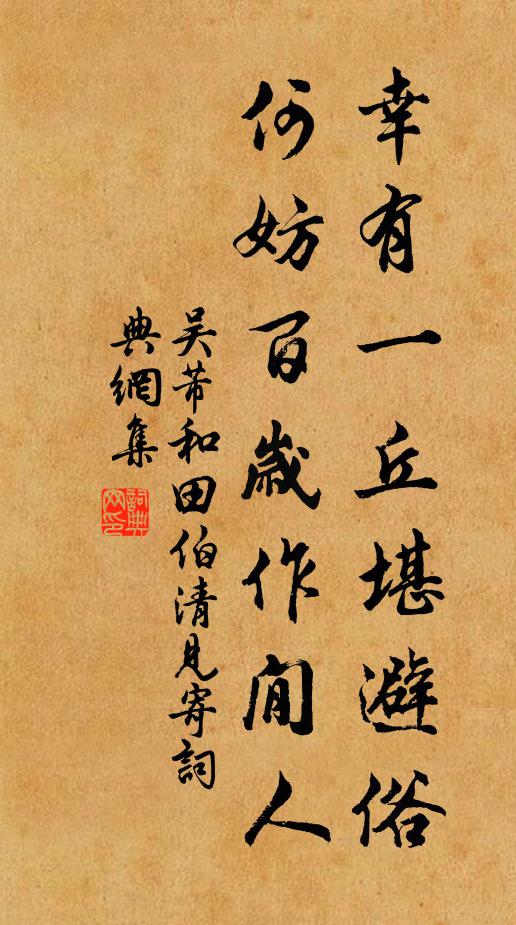 幸有一丘堪避俗
何妨百歲作閒人
吴芾和田伯清見寄詞
典網集
詞典網印